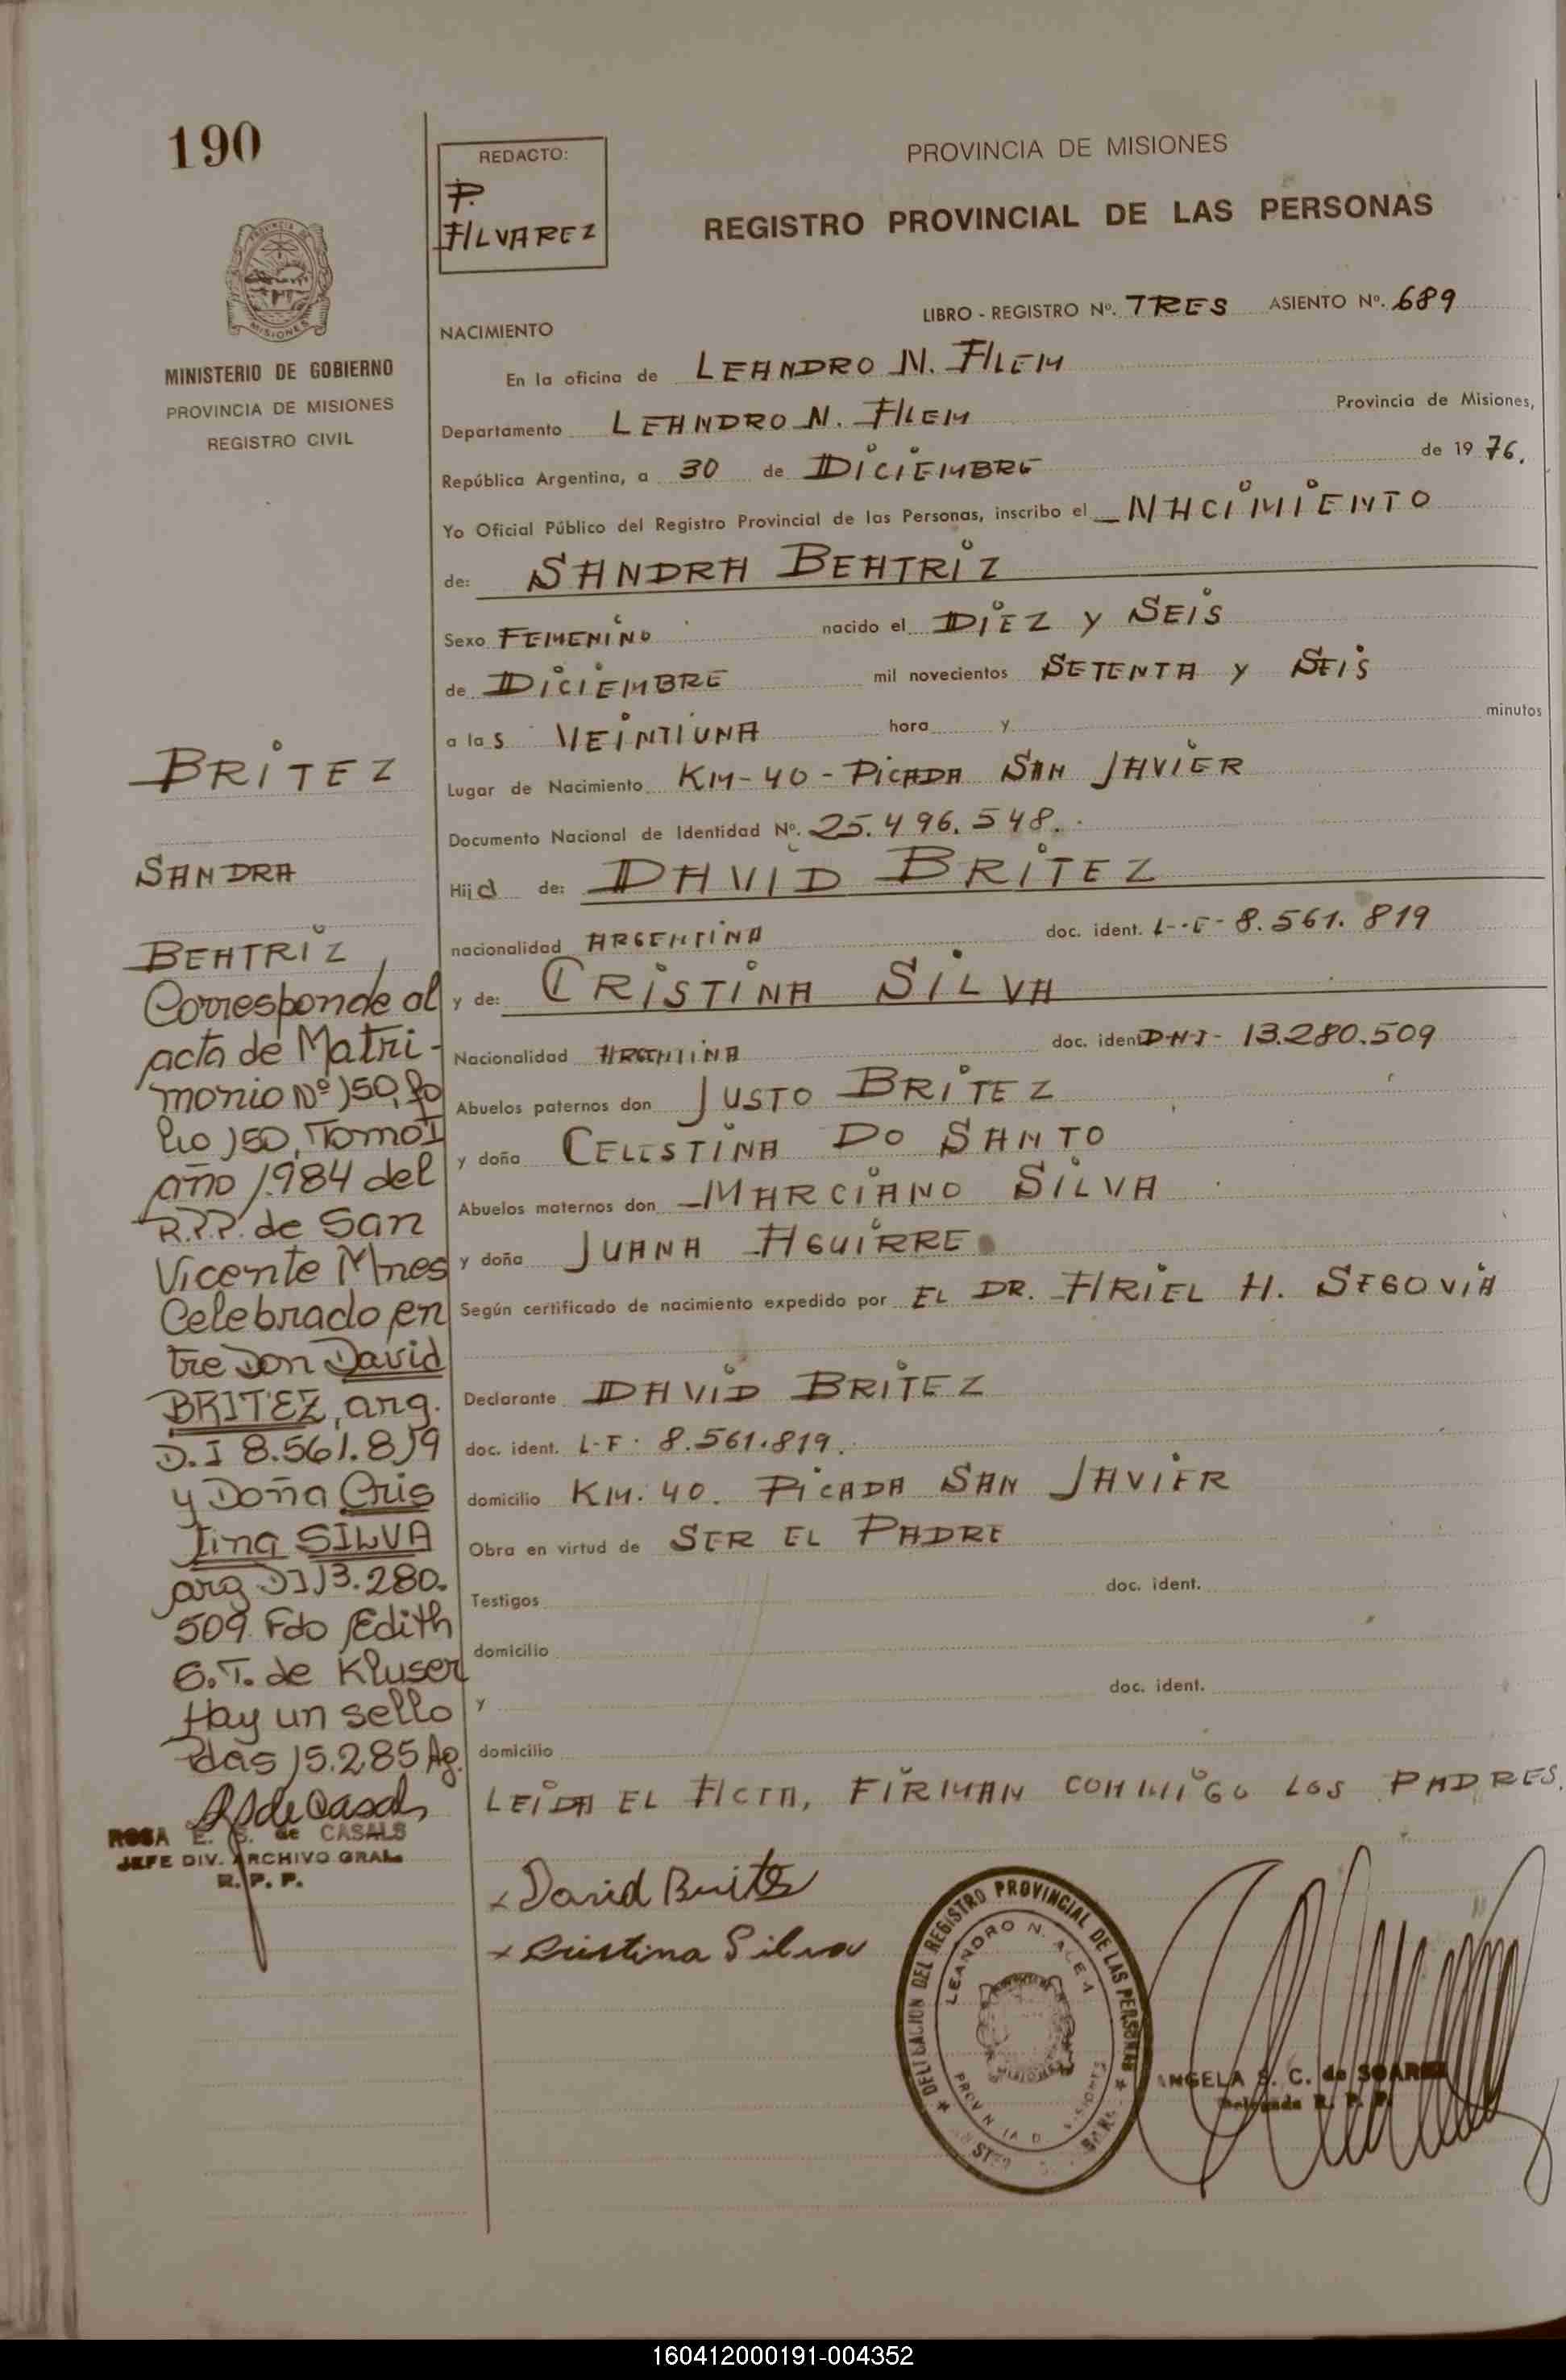 190
MINISTERIO DE GOBIERNO
PROVINCIA DE MISIONES
REGISTRO CIVIL
REDACTO:
P.
ALVAREZ
PROVINCIA DE MISIONES
REGISTRO PROVINCIAL DE LAS PERSONAS
LIBRO - REGISTRO Nº. TRES ASIENTO Nº. 689
NACIMIENTO
En la oficina de LEANDRO N. ALEM
Departamento LEANDRO N. ALEM Provincia de Misiones,
República Argentina, a 30 de DICIEMBRE de 1976.
Yo Oficial Público del Registro Provincial de las Personas, inscribo el NACIMIENTO
de: SANDRA BEATRIZ
Sexo FEMENINO nacido el DIEZ Y SEIS
de DICIEMBRE mil novecientos SETENTA Y SEIS
a las VEINTIUNA hora y minutos
Lugar de Nacimiento KM-40-PICADA SAN JAVIER
Documento Nacional de Identidad Nº. 25.496.548.
Hija de: DAVID BRITEZ
nacionalidad ARGENTINA doc. ident. L-E-8.561.819
y de: CRISTINA SILVA
Nacionalidad ARGENTINA doc. ident D-N-I- 13.280.509
Abuelos paternos don JUSTO BRITEZ
y doña CELESTINA DO SANTO
Abuelos maternos don MARCIANO SILVA
y doña JUANA AGUIRRE
Según certificado de nacimiento expedido por EL DR. ARIEL H. SEGOVIA
Declarante DAVID BRITEZ
doc. ident. L-E. 8.561.819.
domicilio KM. 40. PICADA SAN JAVIER
Obra en virtud de SER EL PADRE
Testigos doc. ident.
domicilio
y doc. ident.
domicilio
LEIDA EL ACTA, FIRMAN CONMIGO LOS PADRES.
x David Britez
x Cristina Silva
BRITEZ
SANDRA
BEATRIZ
Corresponde al
acta de Matri-
monio Nº 150, fo
lio 150, Tomo I
año 1.984 del
R.P.P. de San
Vicente Mnes
Celebrado en
tre Don David
BRITEZ, arg.
D.I 8.561.819
y Doña Cris
tina SILVA
arg DI 13.280.
509. Fdo Edith
S.T. de Kluser
Hay un sello
Pdas 15.2.85 Ag.
RSdeCasals
ROSA E. S. de CASALS
JEFE DIV. ARCHIVO GRAL.
R. P. P.
DELEGACION DEL REGISTRO PROVINCIAL DE LAS PERSONAS
LEANDRO N. ALEM
ANGELA S. C. de SOAREZ
Delegada R. P. P.
160412000191-004352